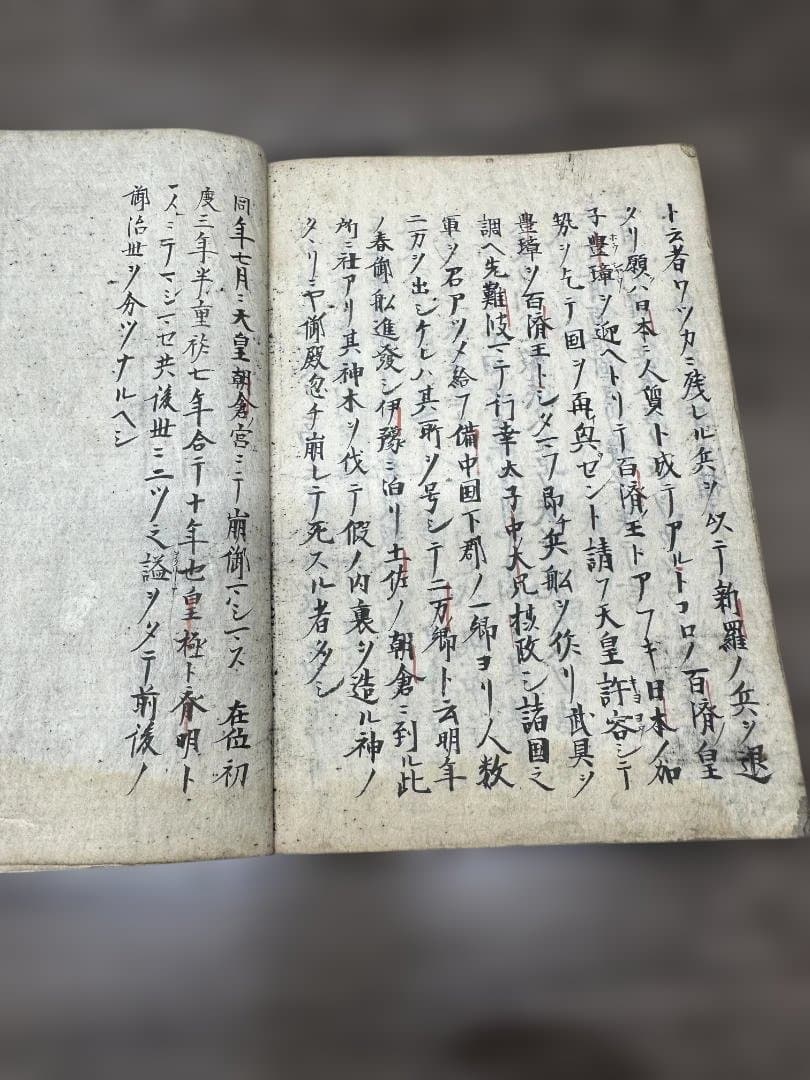 ト云者ワツカニ残レル兵ヲ以テ新羅ノ兵ヲ退
タリ願ハ日本ニ人質ト成テアルトコロノ百済ノ皇
子豊璋ヲ迎ヘトリテ百済ノ王トアフギ日本ノ加
勢ヲ乞テ国ヲ再興ゼント請フ天皇許容シテ
豊璋ヲ百済王トシタマフ即チ兵船ヲ作リ武具ヲ
調ヘ先難波マテ行幸太子中大兄摂政シ諸国之
軍ヲ召アツメ給フ備中国下郡ノ一郷ヨリ人数
二万ヲ出シケレハ其所ヲ号シテ二万郷ト云明年
ノ春御舩進發シ伊豫ニ泊リ土佐ノ朝倉ニ到ル此
所ニ社アリ其神木ヲ伐テ假ノ内裏ヲ造ル神ノ
タヽリニヤ御殿忽チ崩レテ死スル者多シ
同年七月ニ天皇朝倉ノ宮ニテ崩御マシマス 在位初
度三年半重祚七年合テ十年也皇極ト斉明ト
一人ニテマシマセ共後世ニ二ツ之謚ヲタテ前後ノ
御治世ヲ分ツナルヘシ